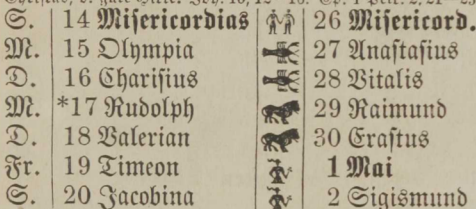 S. 14 Misericordias 26 Misericord.
M. 15 Olympia 27 Anastasius
D. 16 Charisius 28 Vitalis
M. *17 Rudolph 29 Raimund
D. 18 Valerian 30 Erastus
Fr. 19 Timeon 1 Mai
S. 20 Jacobina 2 Sigismund